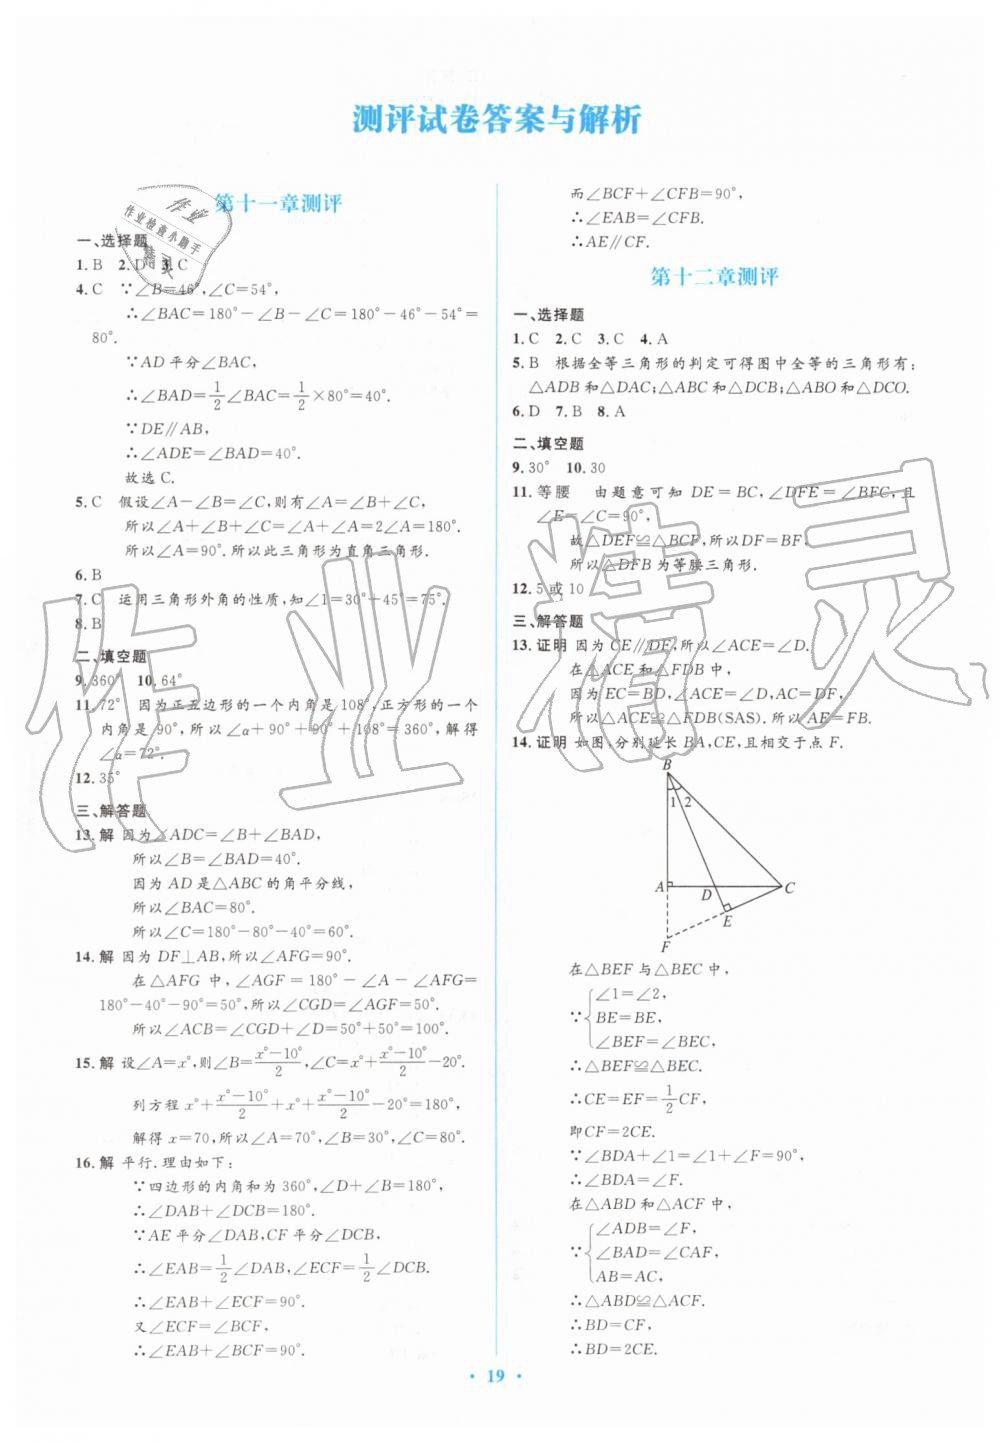 测评试卷答案与解析
第十一章测评
一、选择题
1. B 2. D 3. C
4. C ∵∠B=46°,∠C=54°,
∴∠BAC=180°-∠B-∠C=180°-46°-54°=
80°.
∵AD平分∠BAC,
∴∠BAD=1/2∠BAC=1/2×80°=40°.
∵DE∥AB,
∴∠ADE=∠BAD=40°.
故选C.
5. C 假设∠A-∠B=∠C,则有∠A=∠B+∠C,
所以∠A+∠B+∠C=∠A+∠A=2∠A=180°.
所以∠A=90°.所以此三角形为直角三角形.
6. B
7. C 运用三角形外角的性质,知∠1=30°+45°=75°.
8. B
二、填空题
9. 360° 10. 64°
11. 72° 因为正五边形的一个内角是108°,正方形的一个
内角是90°,所以∠α+90°+90°+108°=360°,解得
∠α=72°.
12. 35°
三、解答题
13. 解 因为∠ADC=∠B+∠BAD,
所以∠B=∠BAD=40°.
因为AD是△ABC的角平分线,
所以∠BAC=80°.
所以∠C=180°-80°-40°=60°.
14. 解 因为DF⊥AB,所以∠AFG=90°.
在△AFG中,∠AGF=180°-∠A-∠AFG=
180°-40°-90°=50°,所以∠CGD=∠AGF=50°.
所以∠ACB=∠CGD+∠D=50°+50°=100°.
15. 解 设∠A=x°,则∠B=(x°-10°)/2,∠C=x°+(x°-10°)/2-20°.
列方程x°+(x°-10°)/2+x°+(x°-10°)/2-20°=180°,
解得x=70,所以∠A=70°,∠B=30°,∠C=80°.
16. 解 平行.理由如下:
∵四边形的内角和为360°,∠D+∠B=180°,
∴∠DAB+∠DCB=180°.
∵AE平分∠DAB,CF平分∠DCB,
∴∠EAB=1/2∠DAB,∠ECF=1/2∠DCB.
∴∠EAB+∠ECF=90°.
又∠ECF=∠BCF,
∴∠EAB+∠BCF=90°.
而∠BCF+∠CFB=90°,
∴∠EAB=∠CFB.
∴AE∥CF.
第十二章测评
一、选择题
1. C 2. C 3. C 4. A
5. B 根据全等三角形的判定可得图中全等的三角形有:
△ADB和△DAC;△ABC和△DCB;△ABO和△DCO.
6. D 7. B 8. A
二、填空题
9. 30° 10. 30
11. 等腰 由题意可知DE=BC,∠DFE=∠BFC,且
∠E=∠C=90°,
故△DEF≌△BCF,所以DF=BF.
所以△DFB为等腰三角形.
12. 5或10
三、解答题
13. 证明 因为CE∥DF,所以∠ACE=∠D.
在△ACE和△FDB中,
因为EC=BD,∠ACE=∠D,AC=DF,
所以△ACE≌△FDB(SAS).所以AE=FB.
14. 证明 如图,分别延长BA,CE,且相交于点F.
B
1 2
A D C
E
F
在△BEF与△BEC中,
∠1=∠2,
∵ BE=BE,
∠BEF=∠BEC,
∴△BEF≌△BEC.
∴CE=EF=1/2CF,
即CF=2CE.
∵∠BDA+∠1=∠1+∠F=90°,
∴∠BDA=∠F.
在△ABD和△ACF中,
∠ADB=∠F,
∵ ∠BAD=∠CAF,
AB=AC,
∴△ABD≌△ACF.
∴BD=CF,
∴BD=2CE.
· 19 ·
作业
作业检查小助手
精灵
作业精灵